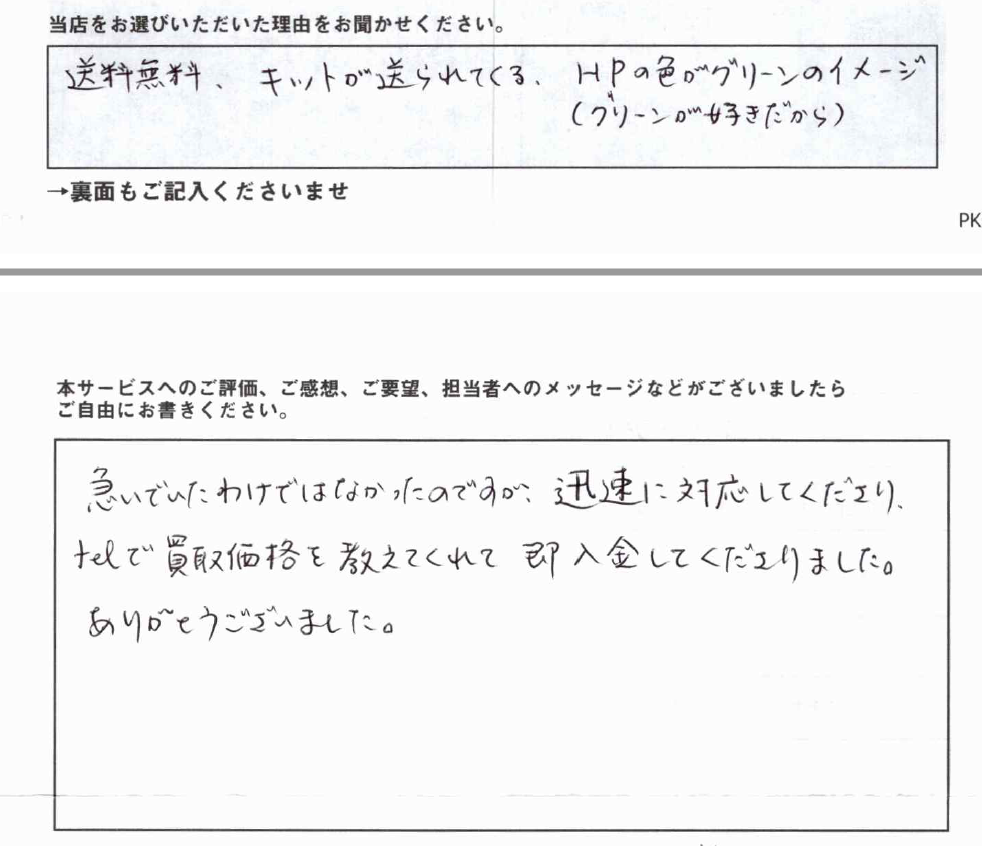 当店をお選びいただいた理由をお聞かせください。
送料無料、キットが送られてくる、HPの色がグリーンのイメージ
(グリーンが好きだから)
→裏面もご記入くださいませ
PK
本サービスへのご評価、ご感想、ご要望、担当者へのメッセージなどがございましたら
ご自由にお書きください。
急いでいたわけではなかったのですが、迅速に対応してくださり、
telで買取価格を教えてくれて即入金してくださりました。
ありがとうございました。